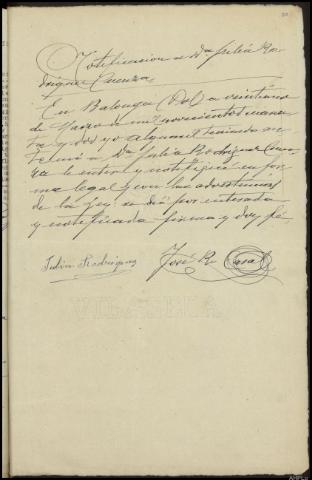 Notificacion a Dª Julia Ro-
driguez Cuenza.
En Balonga (Sol) a veintiuno
de Marzo de mil novecientos cuaren
ta y dos yo alguacil teniendo
a Dª Julia Rodriguez Cuen
za le enteré y notifiqué en for
ma legal y con las advertencias
de la ley se dió por enterada
y notificada firma y doy fé
Julia Rodriguez José R. Casal